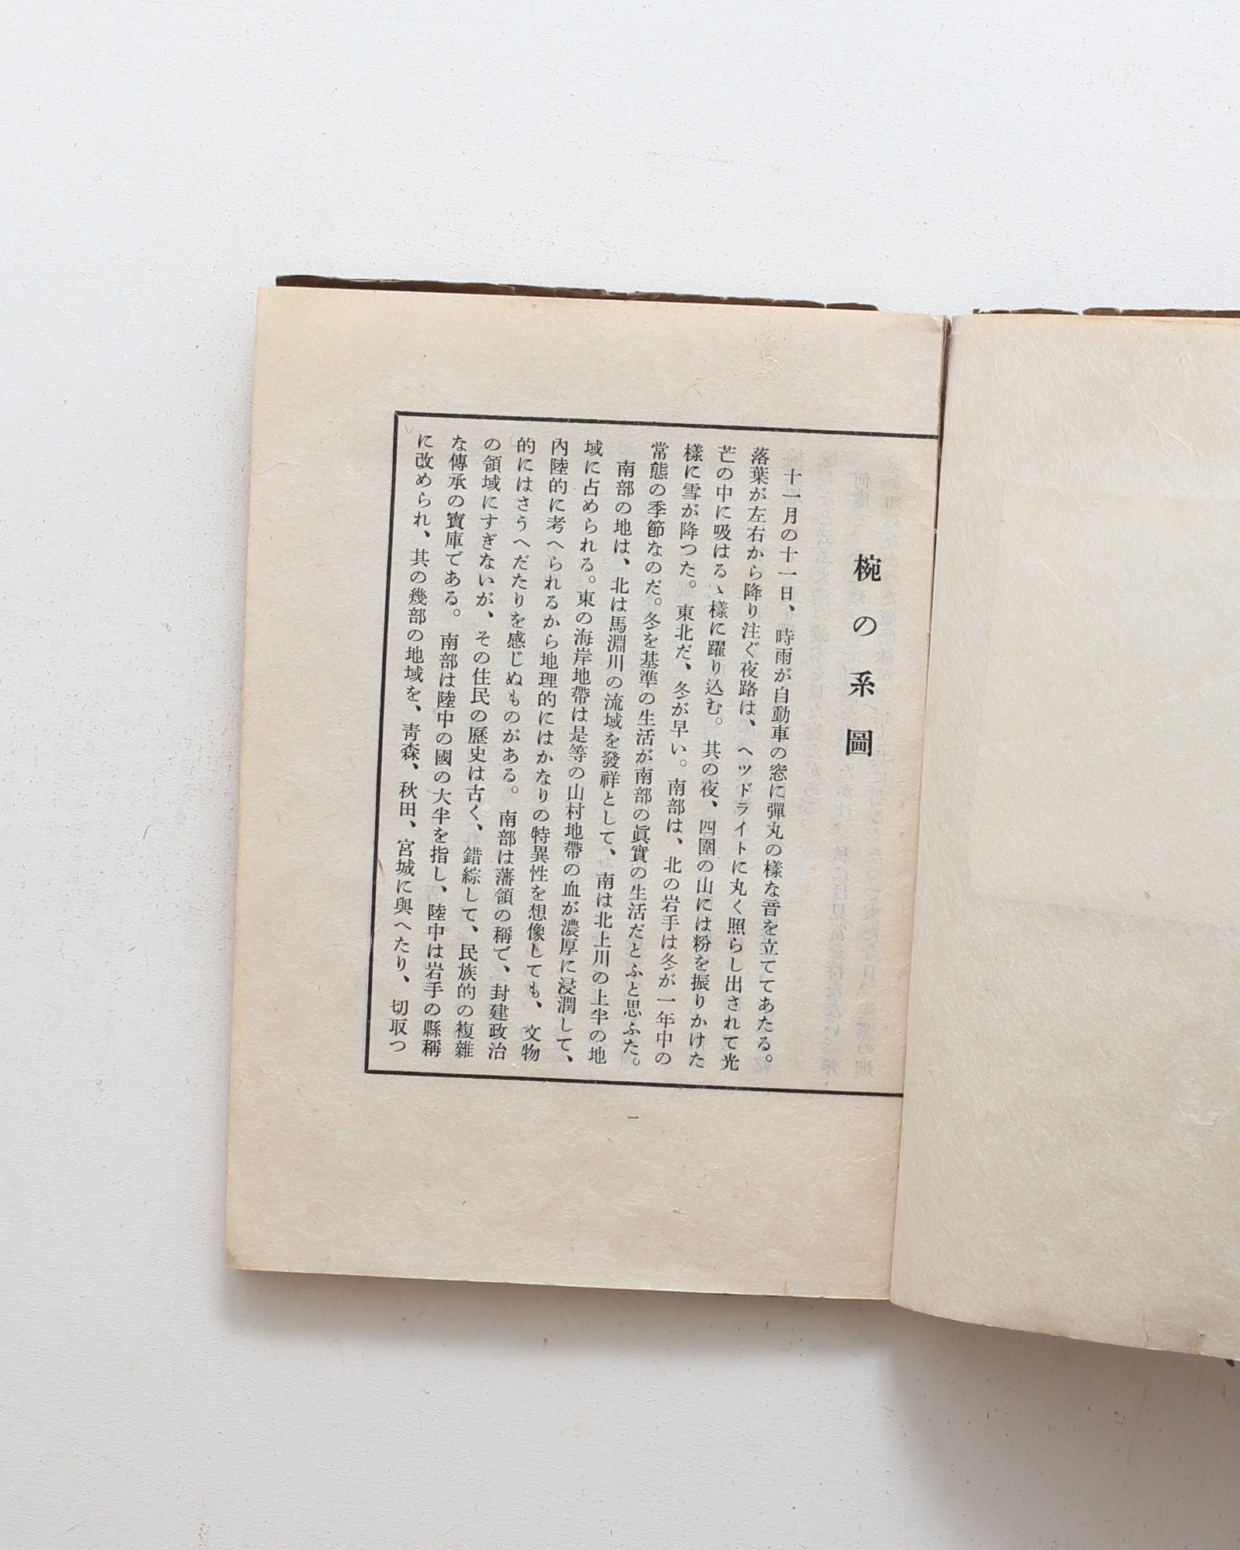 椀の系圖
十一月の十一日、時雨が自動車の窓に彈丸の樣な音を立ててあたる。
落葉が左右から降り注ぐ夜路は、ヘッドライトに丸く照らし出されて光
芒の中に吸はるゝ樣に躍り込む。其の夜、四圍の山には粉を振りかけた
樣に雪が降つた。東北だ、冬が早い。南部は、北の岩手は冬が一年中の
常態の季節なのだ。冬を基準の生活が南部の眞實の生活だとふと思ふた。
南部の地は、北は馬淵川の流域を發祥として、南は北上川の上半の地
域に占められる。東の海岸地帶は是等の山村地帶の血が濃厚に浸潤して、
內陸的に考へられるから地理的にはかなりの特異性を想像しても、文物
的にはさうへだたりを感じぬものがある。南部は藩領の稱で、封建政治
の領域にすぎないが、その住民の歷史は古く、錯綜して、民族的の複雜
な傳承の寶庫である。南部は陸中の國の大半を指し、陸中は岩手の縣稱
に改められ、其の幾部の地域を、靑森、秋田、宮城に與へたり、切取つ
一